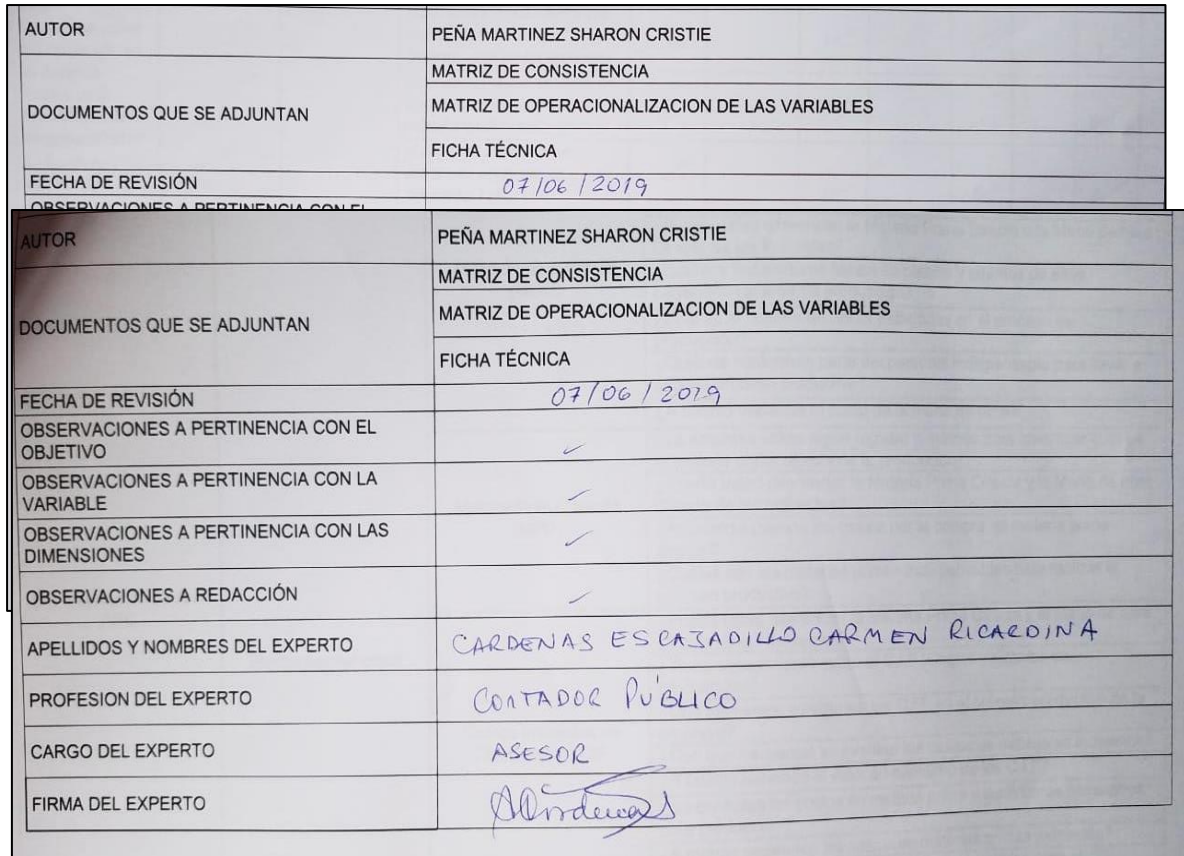 AUTOR PEÑA MARTINEZ SHARON CRISTIE
MATRIZ DE CONSISTENCIA
DOCUMENTOS QUE SE ADJUNTAN MATRIZ DE OPERACIONALIZACION DE LAS VARIABLES
FICHA TÉCNICA
FECHA DE REVISIÓN 07/06/2019
OBSERVACIONES A PERTINENCIA CON EL
AUTOR PEÑA MARTINEZ SHARON CRISTIE
MATRIZ DE CONSISTENCIA
DOCUMENTOS QUE SE ADJUNTAN MATRIZ DE OPERACIONALIZACION DE LAS VARIABLES
FICHA TÉCNICA
FECHA DE REVISIÓN 07/06/2019
OBSERVACIONES A PERTINENCIA CON EL
OBJETIVO ✓
OBSERVACIONES A PERTINENCIA CON LA
VARIABLE ✓
OBSERVACIONES A PERTINENCIA CON LAS
DIMENSIONES ✓
OBSERVACIONES A REDACCIÓN ✓
APELLIDOS Y NOMBRES DEL EXPERTO CARDENAS ESCAJADILLO CARMEN RICARDINA
PROFESION DEL EXPERTO CONTADOR PÚBLICO
CARGO DEL EXPERTO ASESOR
FIRMA DEL EXPERTO